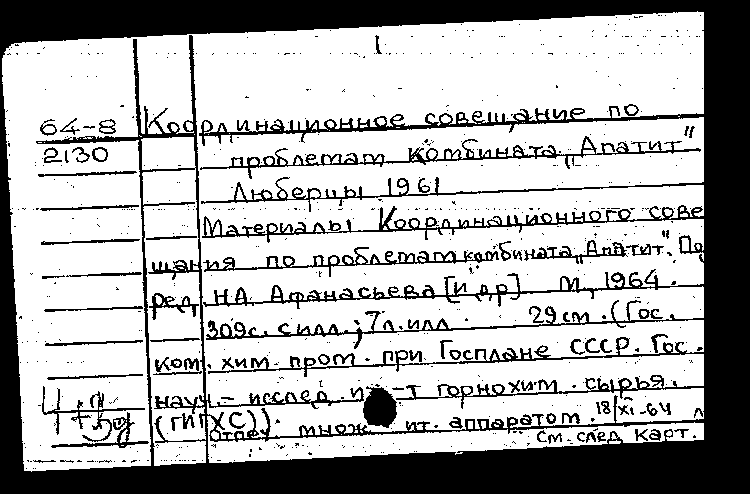 1
64-8 Координационное совещание по
2130 проблемам Комбината „Апатит"
Люберцы 1961
Материалы Координационного сове
щания по проблемам комбината „Апатит". По
ред. Н.А. Афанасьева [и др] М, 1964.
309с. с илл.; 7л. илл. 29 см. (Гос.
ком. хим. пром. при Госплане СССР. Гос.
науч.- исслед. ин-т горнохим. сырья.
(ГИГХС)).
Отпеч. множит. аппаратом. 18/XI-64
См. след. карт.